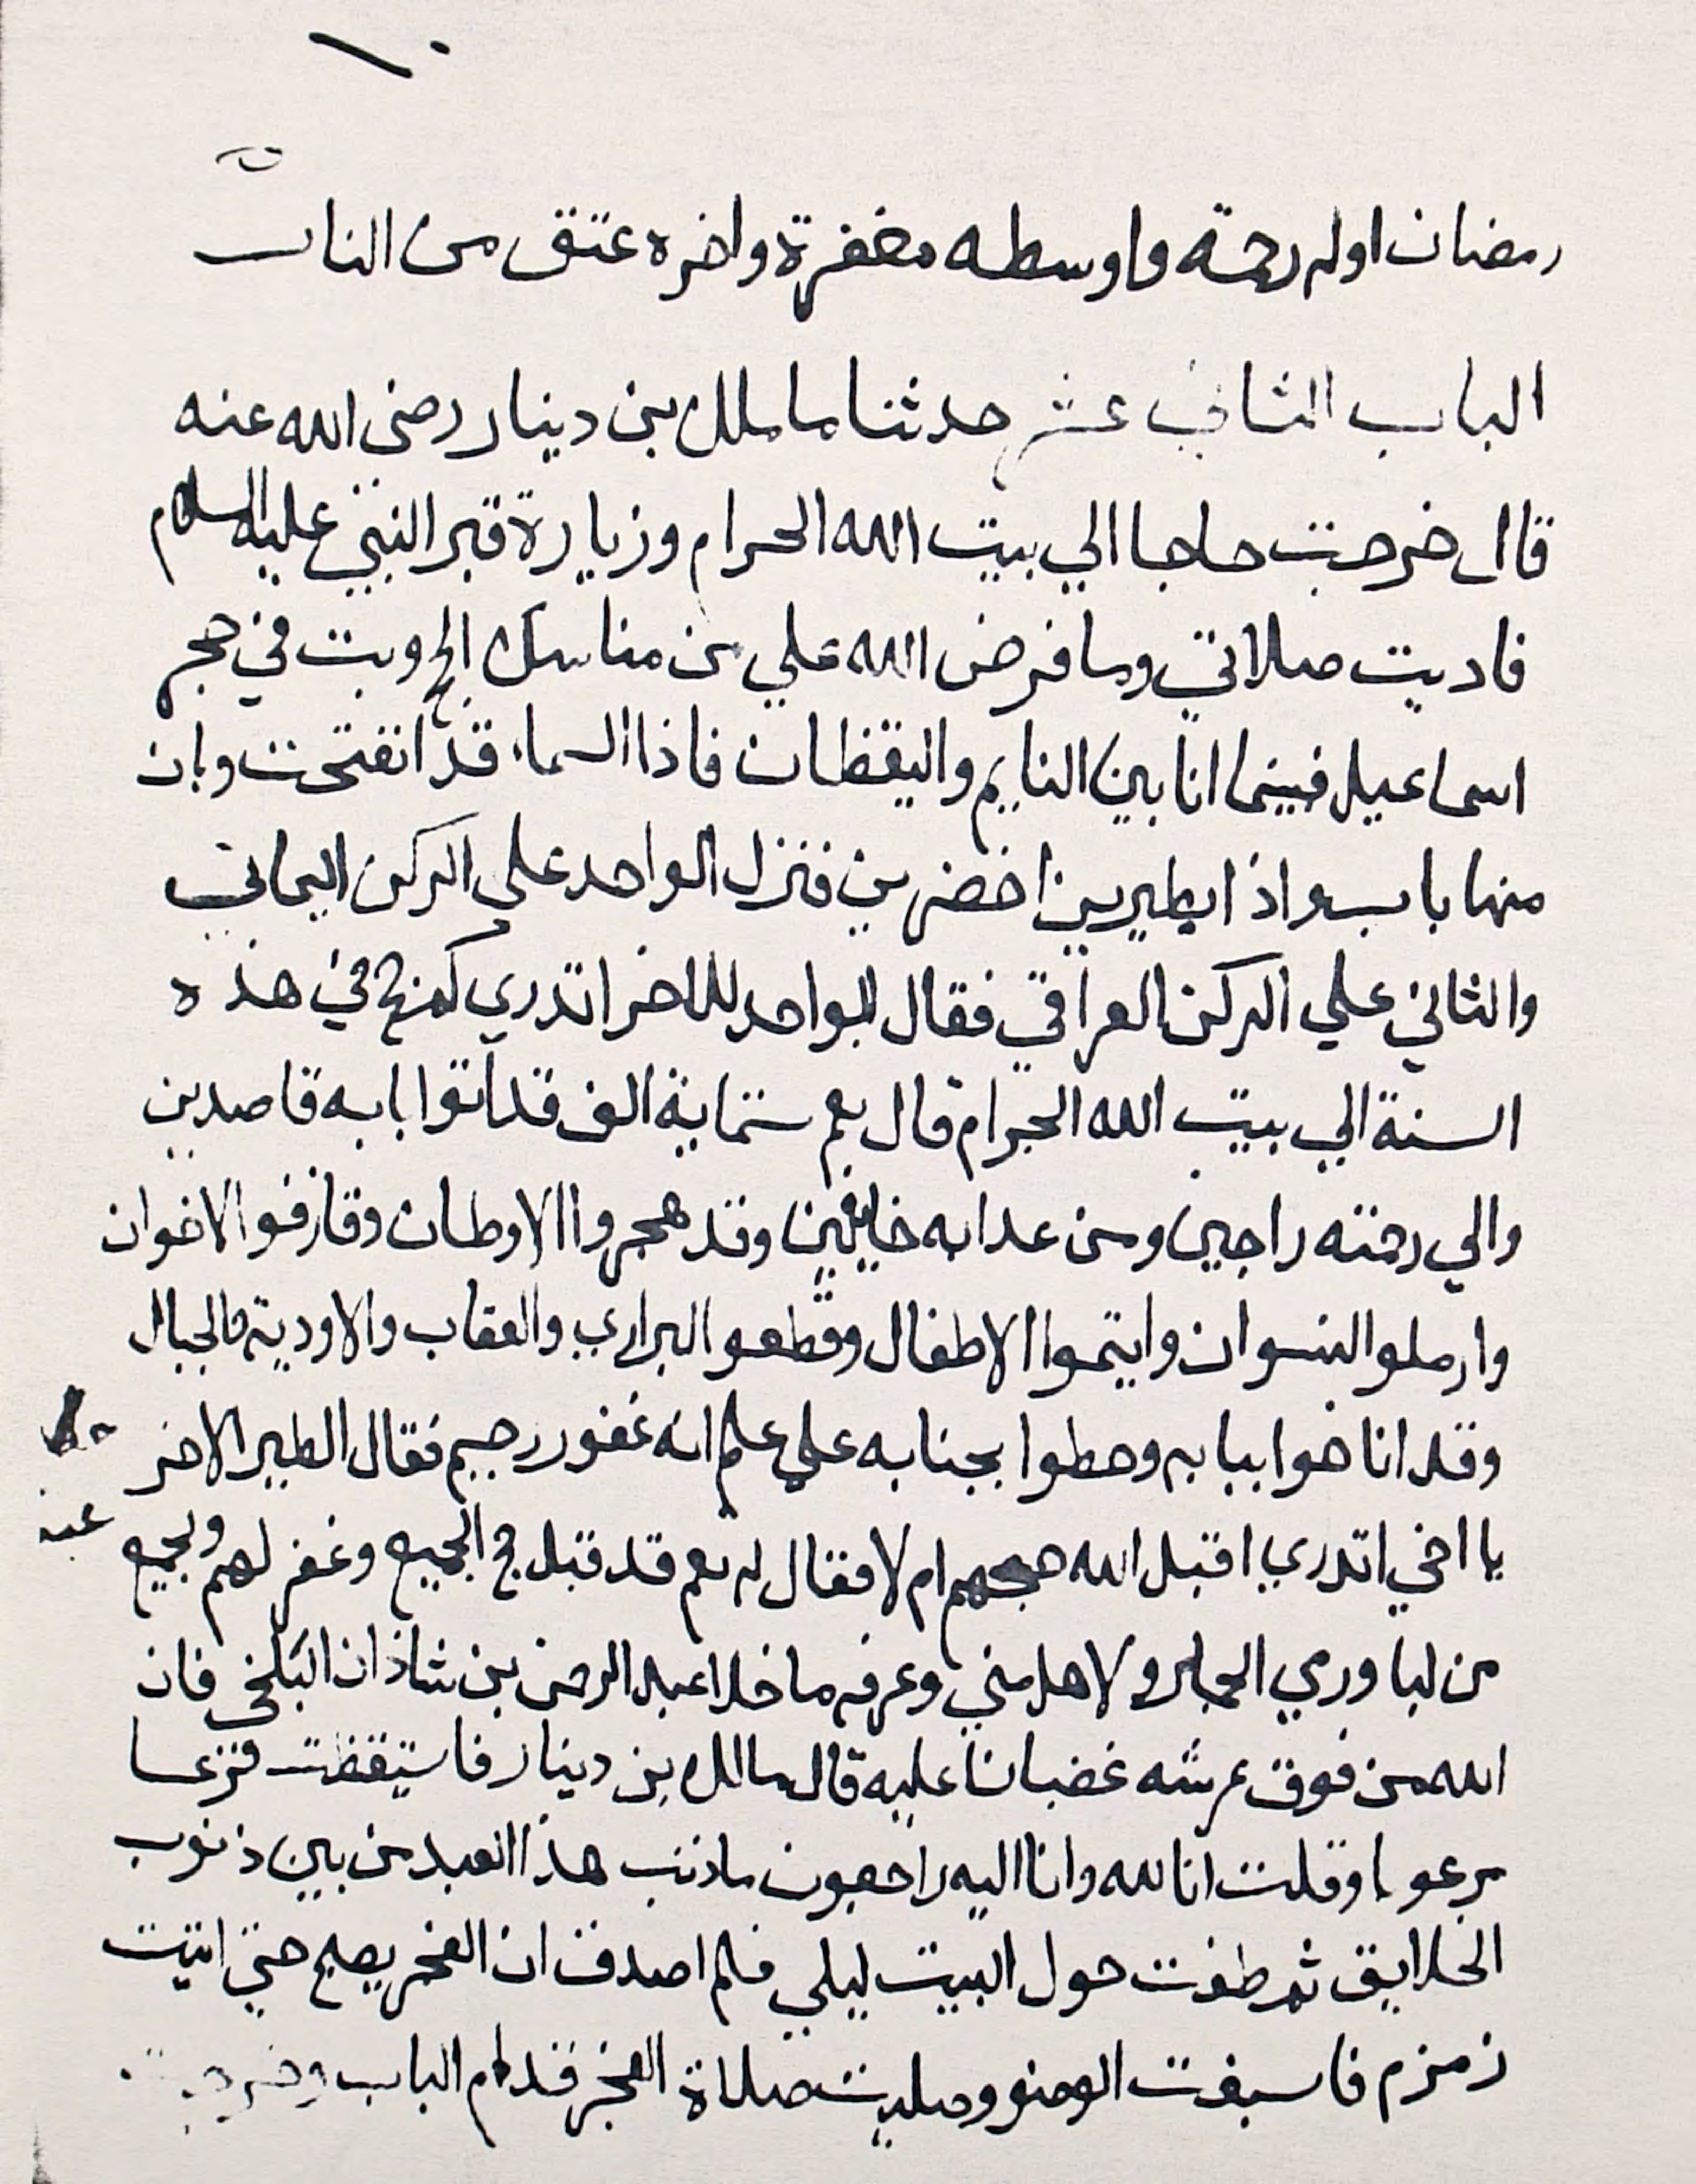 رمضان اوله رحمة واوسطه مغفرة واخره عتق من النار
الباب الثاني عشر حدثنا مالك بن دينار رضى الله عنه
قال خرجت حاجا الي بيت الله الحرام وزيارة قبر النبي عليه السلام
فاديت صلاتي وما فرض الله علي من مناسك الحج وبت في حجر
اسماعيل فبينما انا بين النايم واليقظان فاذا السماء قد انفتحت وبان
منها باب واذا بطيرين اخضرين فنزل الواحد على الركن اليماني
والثاني علي الركن العراقي فقال الواحد للاخر اتدري كم حج في هذه
السنة الي بيت الله الحرام قال نعم ستماية الف قد اتوا بابه قاصدين
والي رحمته راجين ومن عدابه خايفين وقد هجروا الاوطان وفارقوا الاخوان
وارملوا النسوان وايتموا الاطفال وقطعو البراري والعقاب والاودية والجبال
وقد اناخوا ببابه وحطوا بجنابه علي علم انه غفور رحيم فقال الطير الاخر
يا اخي اتدري اقبل الله حجهم ام لا فقال له نعم قد قبل حج الجميع وغفر لهم ولجميع
من ولاهل مني وعرفه ما خلا عبد الرحمن بن شاذان البلخي فان
الله من فوق عرشه غضبانا عليه قال مالك بن دينار فاستيقظت فزعا
مرعوبا وقلت انا لله وانا اليه راجعون ماذنب هذا العبد من بين ذنوب
الخلايق ثم طفت حول البيت ليلي فلم اصدق ان الفجر يصبح حتي اتيت
زمزم فاسبغت الوضو وصليت صلاة الفجر قدام الباب